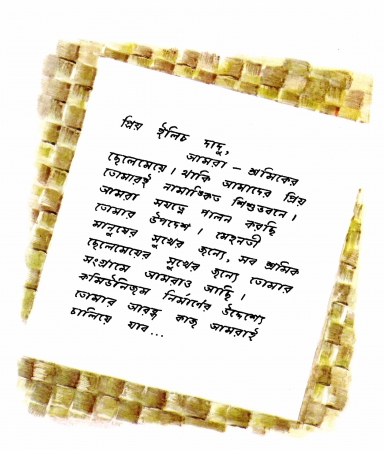 প্রিয় ইলিচ দাদু,
আমরা – শ্রমিকের
ছেলেমেয়ে। থাকি আমাদের প্রিয়
তোমারই নামাঙ্কিত শিশুভবনে।
আমরা সযত্নে পালন করছি
তোমার উপদেশ। মেহনতী
মানুষের সুখের জন্যে, সব শ্রমিক
ছেলেমেয়ের সুখের জন্যে তোমার
সংগ্রামে আমরাও আছি।
কমিউনিজম নির্মাণের উদ্দেশ্যে
তোমার আরব্ধ কাজ আমরাই
চালিয়ে যাব...